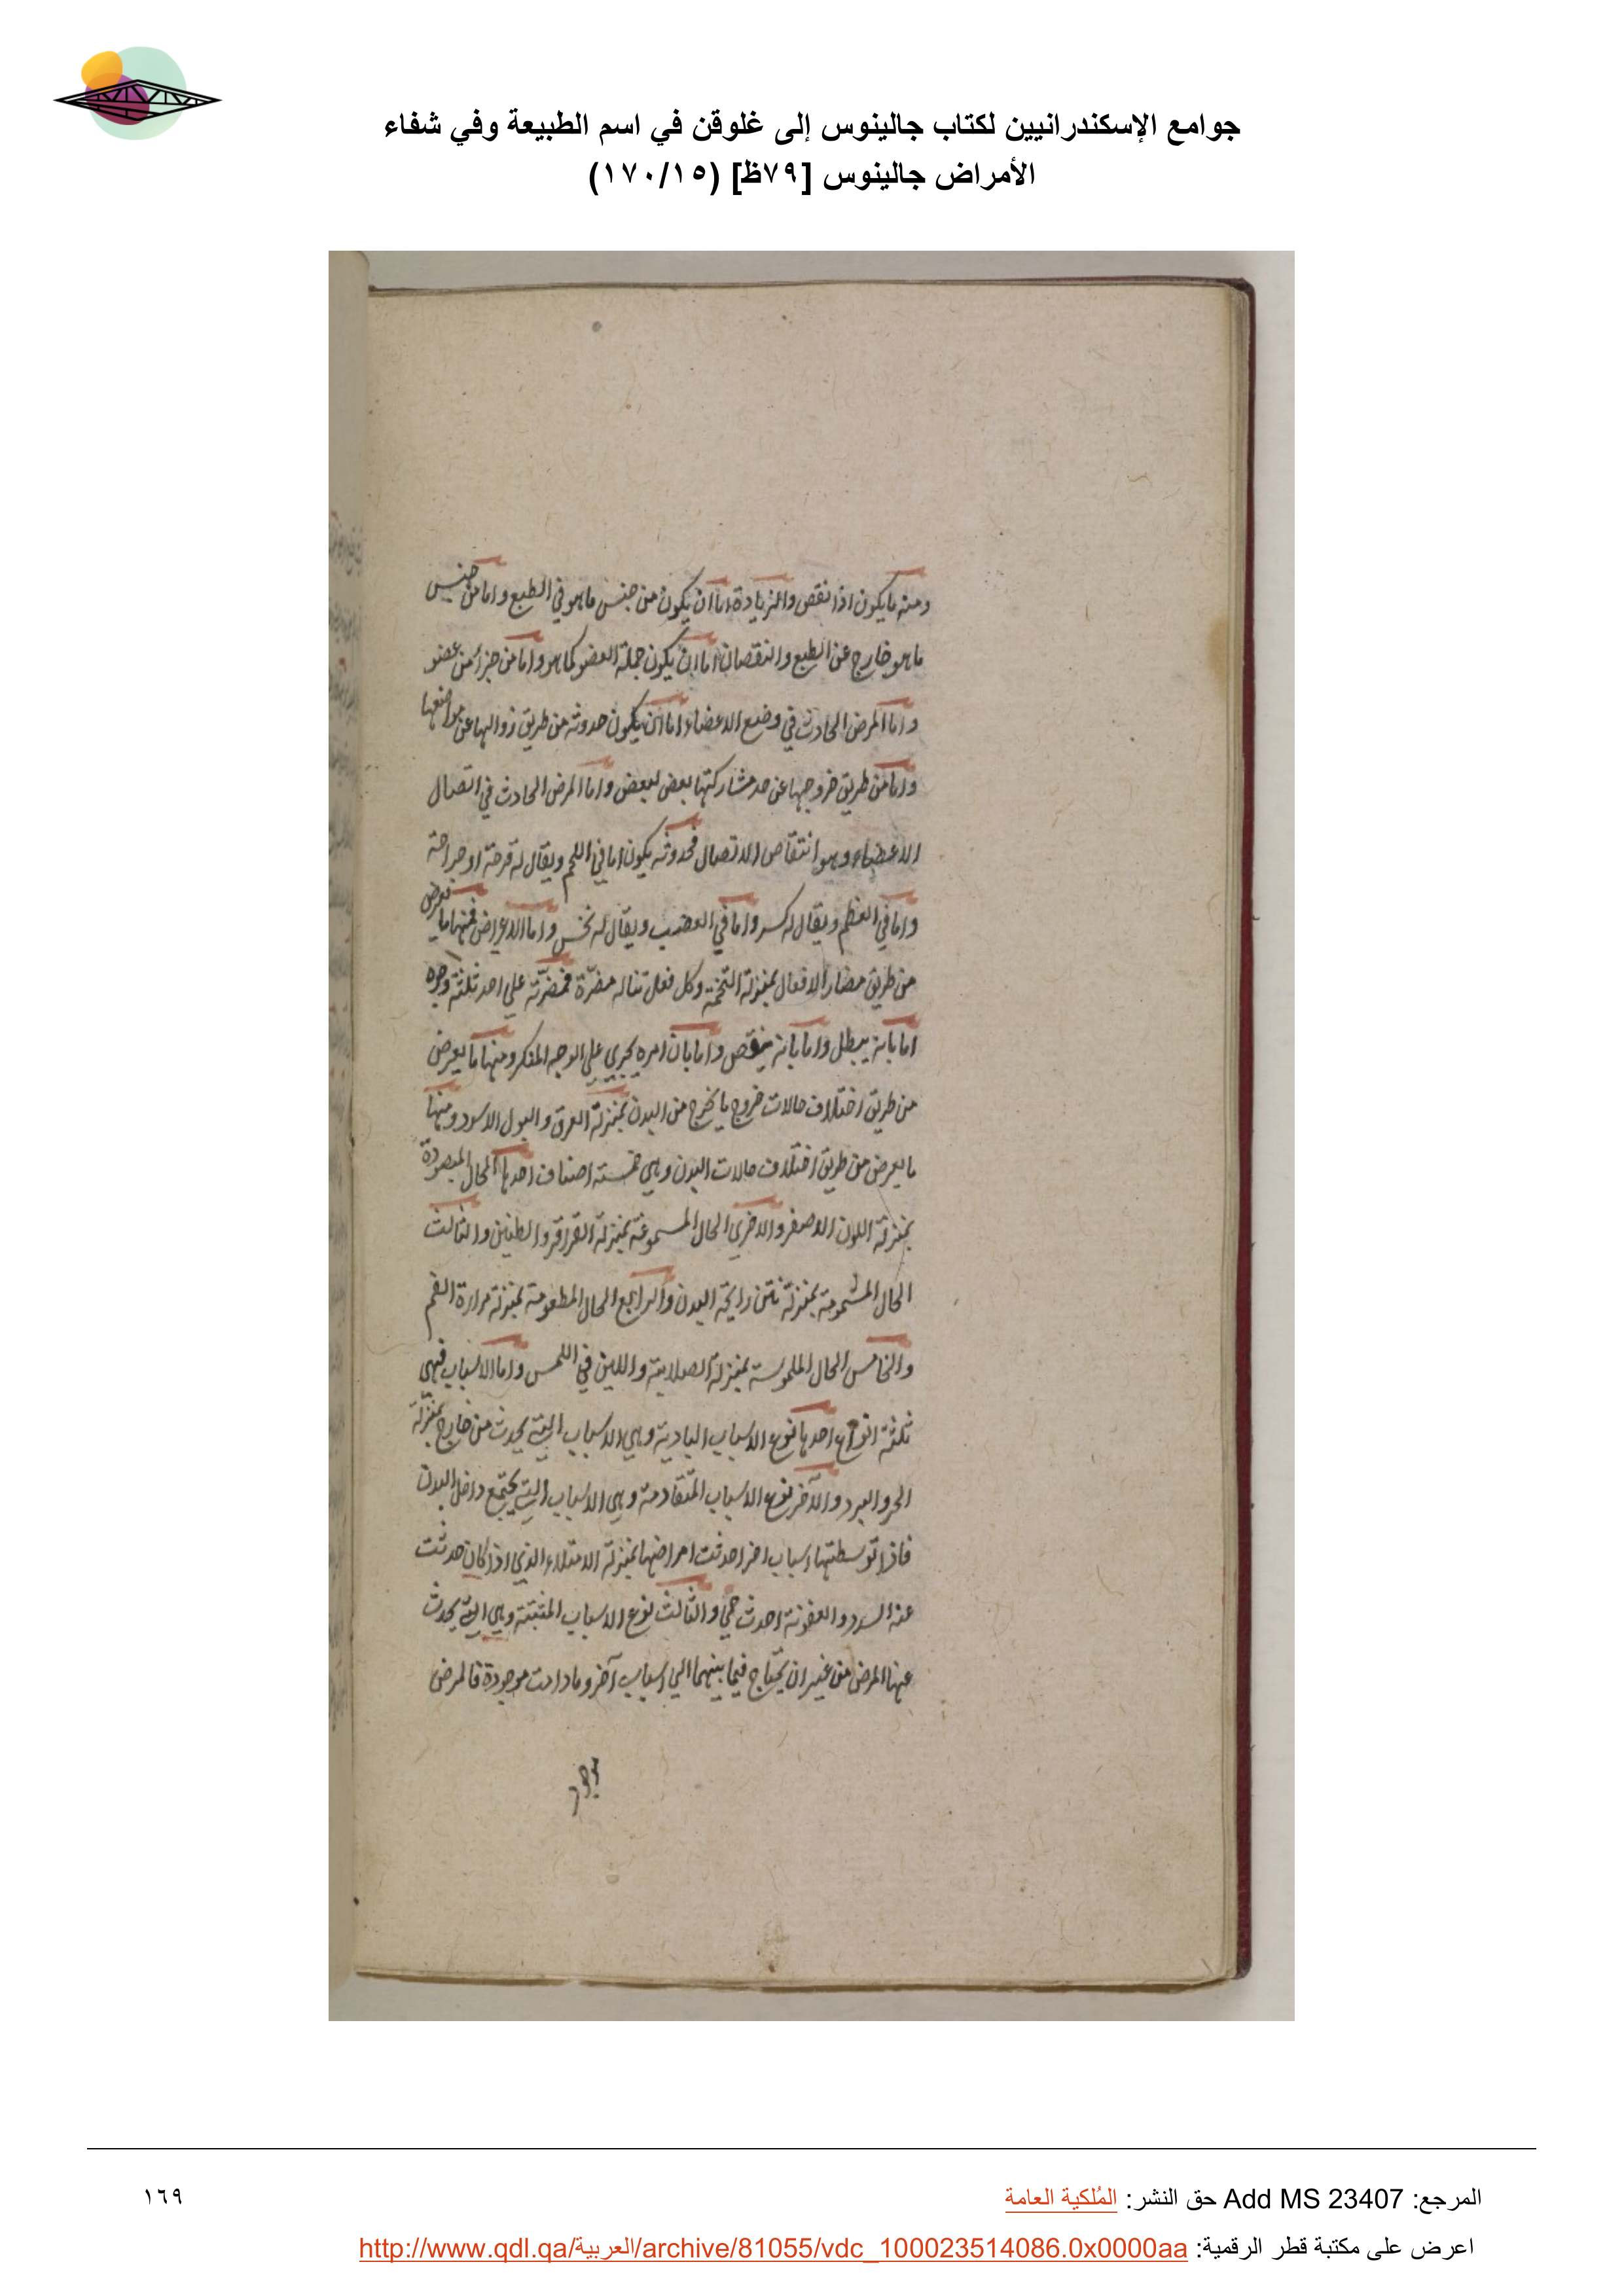 جوامع الإسكندرانيين لكتاب جالينوس إلى غلوقن في اسم الطبيعة وفي شفاء
الأمراض جالينوس [٧٩ظ] (١٧٠/١٥)
ومنه ما يكون اذا نقص والزيادة اما ان يكون من جنس ما هو في الطبع واما من جنس
ما هو خارج عن الطبع والنقصان اما ان يكون جملة العضو كما هو واما من جزء من عضو
واما المرض الحادث في وضع الاعضاء اما ان يكون حدوثه من طريق زوالها عن مواضعها
واما من طريق خروجها عن حد مشاركتها بعض لبعض واما المرض الحادث في اتصال
الاعضاء وهو انتقاص الاتصال فحدوثه يكون اما في اللحم ويقال له قرحة او جراحة
واما في العظم ويقال له كسر واما في العصب ويقال له نخس واما الاعراض فمنها ما يعرض
من طريق مضار الافعال بمنزلة التخمة وكل فعل تناله مضرّة فمضرّته على احد ثلثة وجوه
اما بانه يبطل واما بانه ينقص واما بان امره يجري على الوجه المنكر ومنها ما يعرض
من طريق اختلاف حالات خروج ما يخرج من البدن بمنزلة العرق والبول الاسود ومنها
ما يعرض من طريق اختلاف حالات البدن وهي خمسة اصناف احدها الحال المبصورة
بمنزلة اللون الاصفر والاخرى الحال المسموعة بمنزلة القراقر والطنين والثالث
الحال المشمومة بمنزلة نتن رايحة البدن والرابع الحال المطعومة بمنزلة مرارة الفم
والخامس الحال الملموسة بمنزلة الصلابة واللين في اللمس واما الاسباب فهي
ثلثة انواع احدها نوع الاسباب البادية وهي الاسباب التي يحدث من خارج بمنزلة
الحر والبرد والآخر نوع الاسباب المتقادمة وهي الاسباب التي يجتمع داخل البدن
فاذا توسطتها اسباب اخر احدثت امراضها بمنزلة الامتلاء الذي اذا كان حدثت
عنه السدد والعفونة احدث حمى والثالث نوع الاسباب المثبتة وهي التي يحدث
عنها المرض من غير ان يحتاج فيما بينهما الى اسباب آخر وما دامت موجودة فالمرض
المرجع: Add MS 23407 حق النشر: المُلكية العامة
١٦٩
اعرض على مكتبة قطر الرقمية: http://www.qdl.qa/العربية/archive/81055/vdc_100023514086.0x0000aa